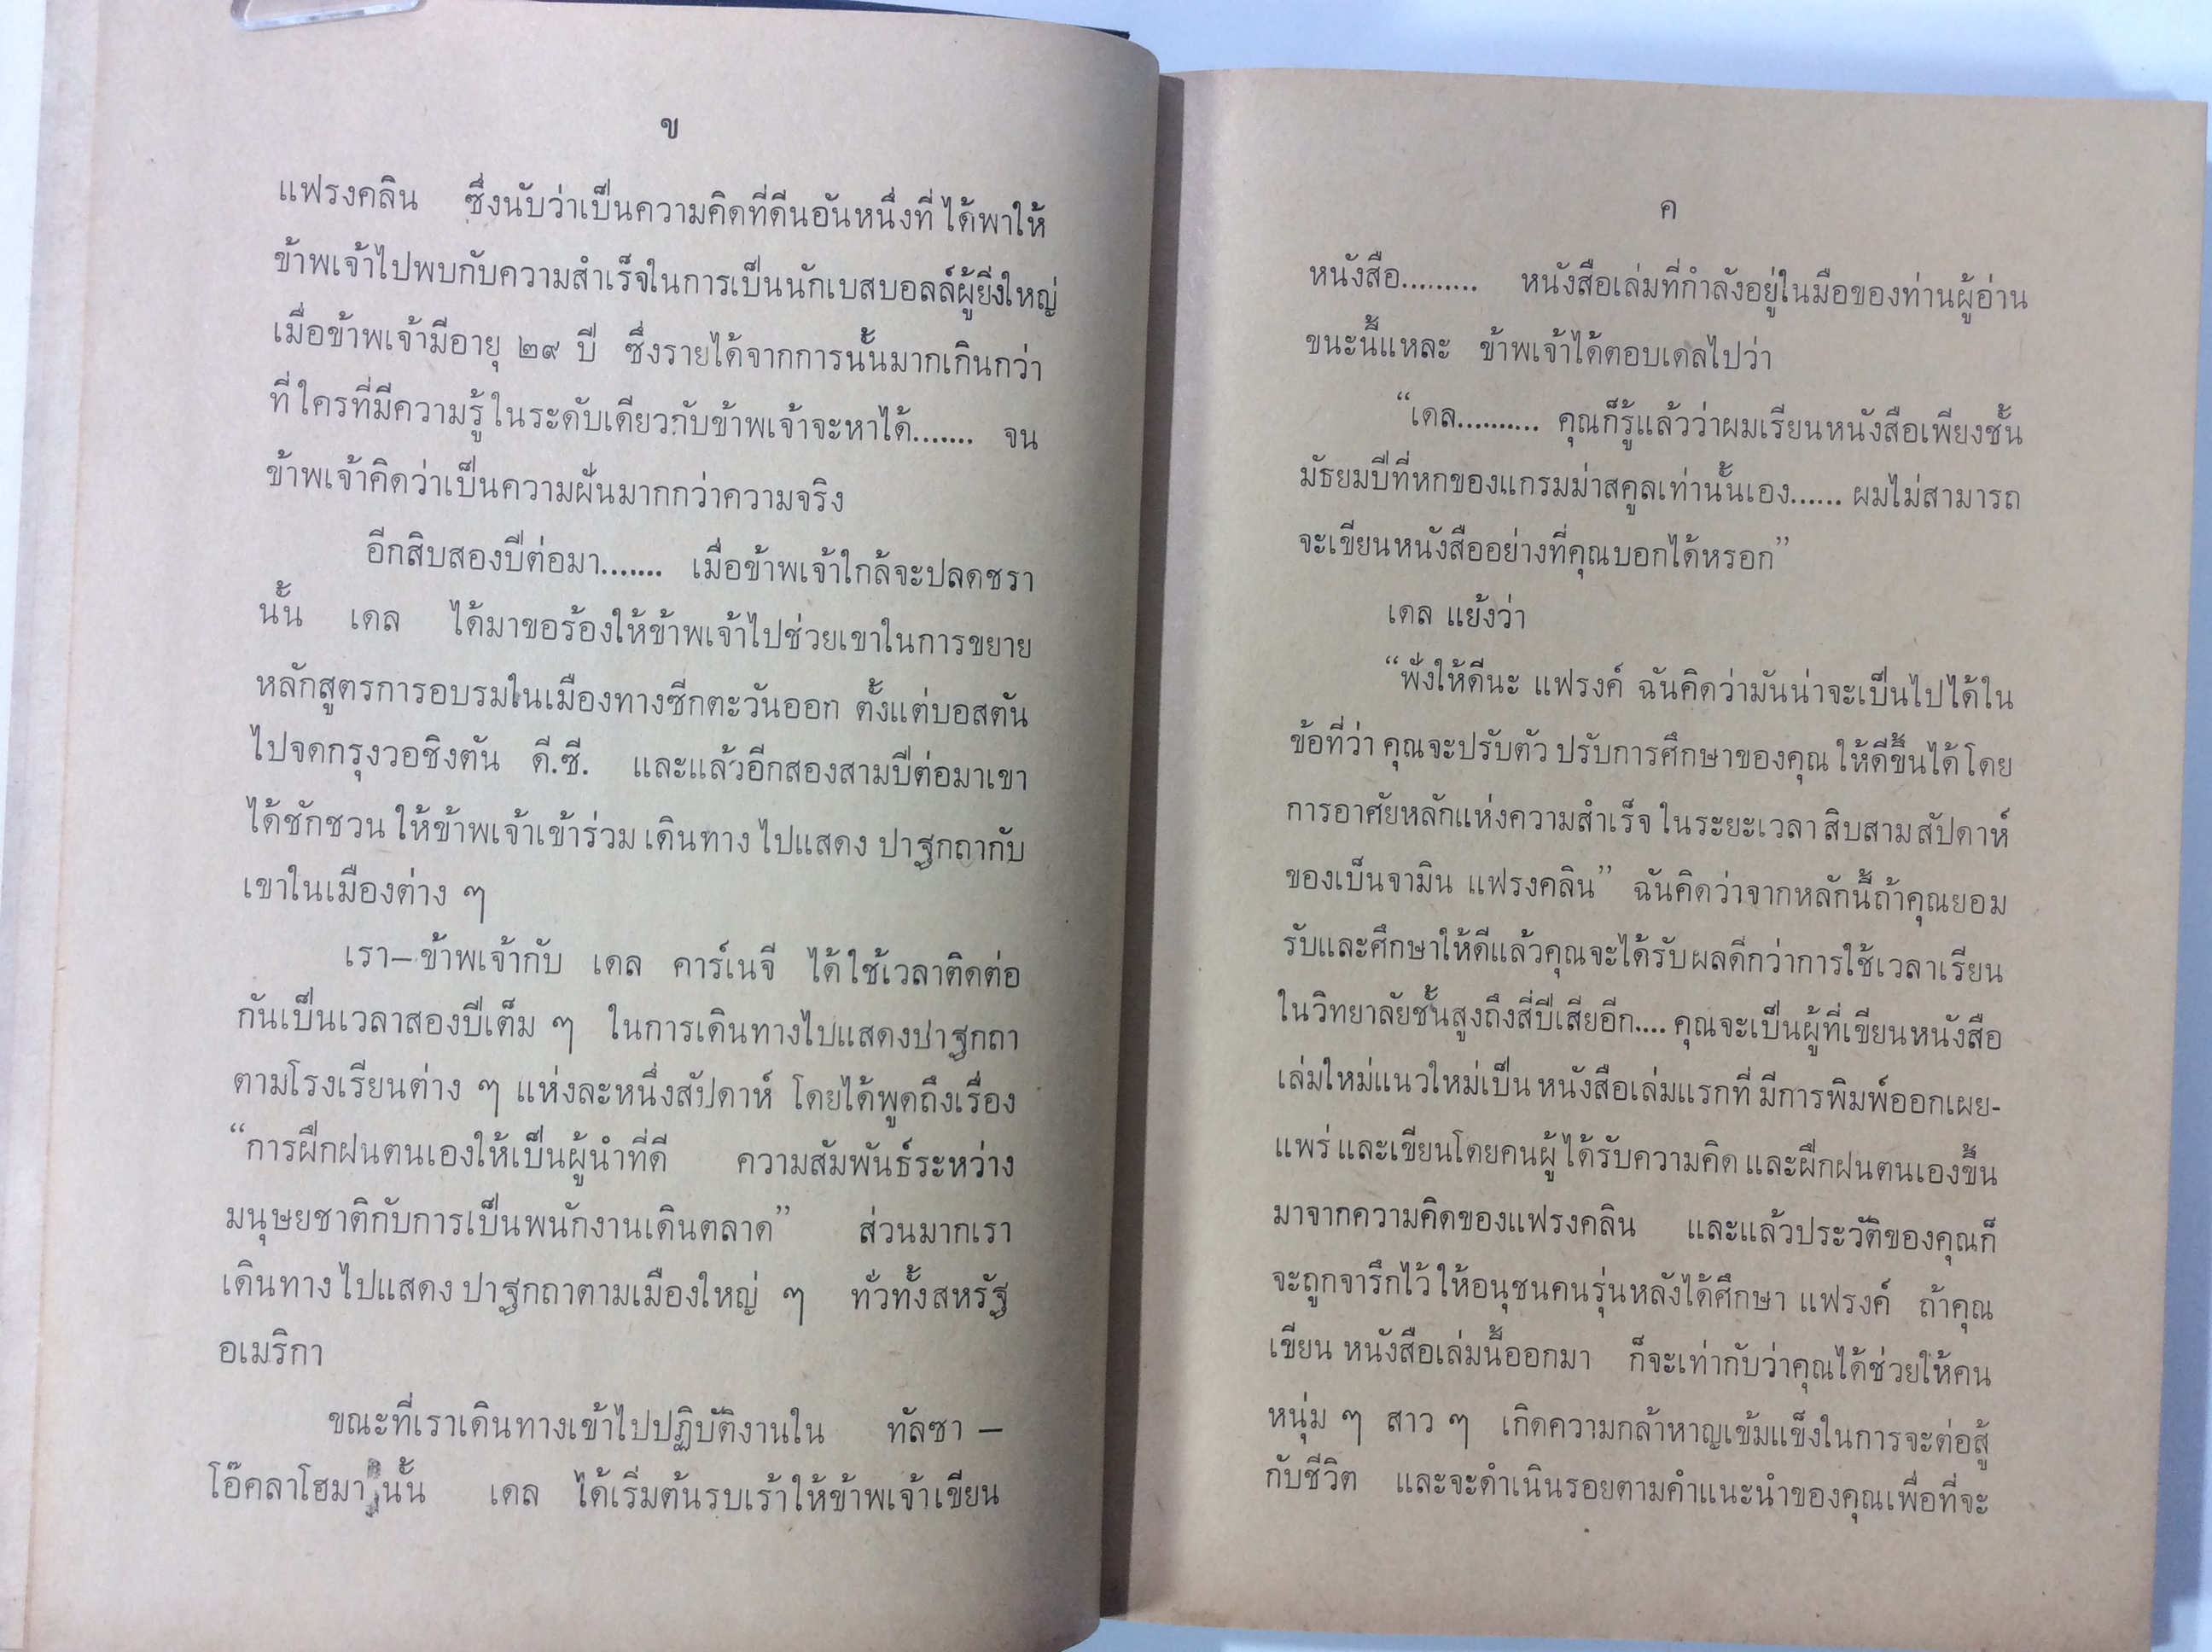 ข
แฟรงคลิน ซึ่งนับว่าเป็นความคิดที่ดีนอันหนึ่งที่ ได้พาให้
ข้าพเจ้าไปพบกับความสำเร็จในการเป็นนักเบสบอลล์ผู้ยิ่งใหญ่
เมื่อข้าพเจ้ามีอายุ ๒๙ ปี ซึ่งรายได้จากการนั้นมากเกินกว่า
ที่ ใครที่มีความรู้ ในระดับเดียวกับข้าพเจ้าจะหาได้....... จน
ข้าพเจ้าคิดว่าเป็นความฝันมากกว่าความจริง
อีกสิบสองปีต่อมา....... เมื่อข้าพเจ้าใกล้จะปลดชรา
นั้น เดล ได้มาขอร้องให้ข้าพเจ้าไปช่วยเขาในการขยาย
หลักสูตรการอบรมในเมืองทางซีกตะวันออก ตั้งแต่บอสตัน
ไปจดกรุงวอชิงตัน ดี.ซี. และแล้วอีกสองสามปีต่อมาเขา
ได้ชักชวน ให้ข้าพเจ้าเข้าร่วม เดินทาง ไปแสดง ปาฐกถากับ
เขาในเมืองต่าง ๆ
เรา—ข้าพเจ้ากับ เดล คาร์เนจี ได้ ใช้เวลาติดต่อ
กันเป็นเวลาสองปีเต็ม ๆ ในการเดินทางไปแสดงปาฐกถา
ตามโรงเรียนต่าง ๆ แห่งละหนึ่งสัปดาห์ โดยได้พูดถึงเรื่อง
“การฝึกฝนตนเองให้เป็นผู้นำที่ดี ความสัมพันธ์ระหว่าง
มนุษยชาติกับการเป็นพนักงานเดินตลาด” ส่วนมากเรา
เดินทาง ไปแสดง ปาฐกถาตามเมืองใหญ่ ๆ ทั่วทั้งสหรัฐ
อเมริกา
ขณะที่เราเดินทางเข้าไปปฏิบัติงานใน ทัลซา —
โอ๊คลาโฮมา นั้น เดล ได้เริ่มต้นรบเร้าให้ข้าพเจ้าเขียน
ค
หนังสือ......... หนังสือเล่มที่กำลังอยู่ในมือของท่านผู้อ่าน
ขนะนี้แหละ ข้าพเจ้าได้ตอบเดลไปว่า
“เดล.......... คุณก็รู้แล้วว่าผมเรียนหนังสือเพียงชั้น
มัธยมปีที่หกของแกรมม่าสคูลเท่านั้นเอง...... ผมไม่สามารถ
จะเขียนหนังสืออย่างที่คุณบอกได้หรอก”
เดล แย้งว่า
“ฟังให้ดีนะ แฟรงค์ ฉันคิดว่ามันน่าจะเป็นไปได้ใน
ข้อที่ว่า คุณจะปรับตัว ปรับการศึกษาของคุณ ให้ดีขึ้นได้ โดย
การอาศัยหลักแห่งความสำเร็จ ในระยะเวลา สิบสาม สัปดาห์
ของเบ็นจามิน แฟรงคลิน” ฉันคิดว่าจากหลักนี้ถ้าคุณยอม
รับและศึกษาให้ดีแล้วคุณจะได้รับ ผลดีกว่าการใช้เวลาเรียน
ในวิทยาลัยชั้นสูงถึงสี่ปีเสียอีก.... คุณจะเป็นผู้ที่เขียนหนังสือ
เล่มใหม่แนวใหม่เป็น หนังสือเล่มแรกที่ มีการพิมพ์ออกเผย-
แพร่ และเขียนโดยคนผู้ ได้รับความคิด และฝึกฝนตนเองขึ้น
มาจากความคิดของแฟรงคลิน และแล้วประวัติของคุณก็
จะถูกจารึกไว้ ให้อนุชนคนรุ่นหลังได้ศึกษา แฟรงค์ ถ้าคุณ
เขียน หนังสือเล่มนี้ออกมา ก็จะเท่ากับว่าคุณได้ช่วยให้คน
หนุ่ม ๆ สาว ๆ เกิดความกล้าหาญเข้มแข็งในการจะต่อสู้
กับชีวิต และจะดำเนินรอยตามคำแนะนำของคุณเพื่อที่จะ